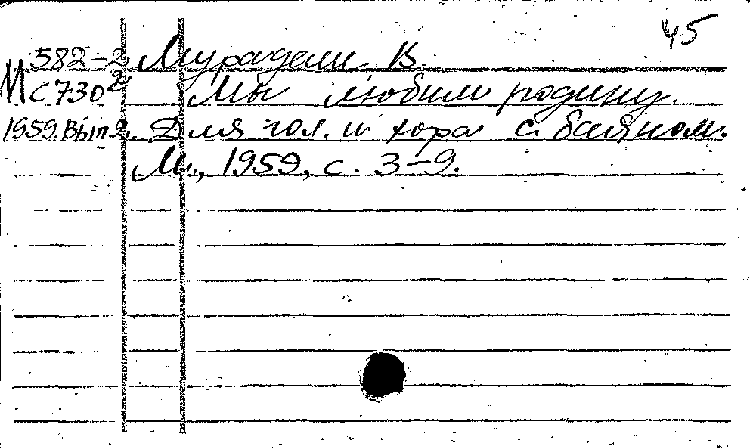 45
582-2 Мурадели В.
М С730² Мы любим родину.
1959.Вып.2. Для гол. и хора с баяном.
М., 1959, с. 3-9.